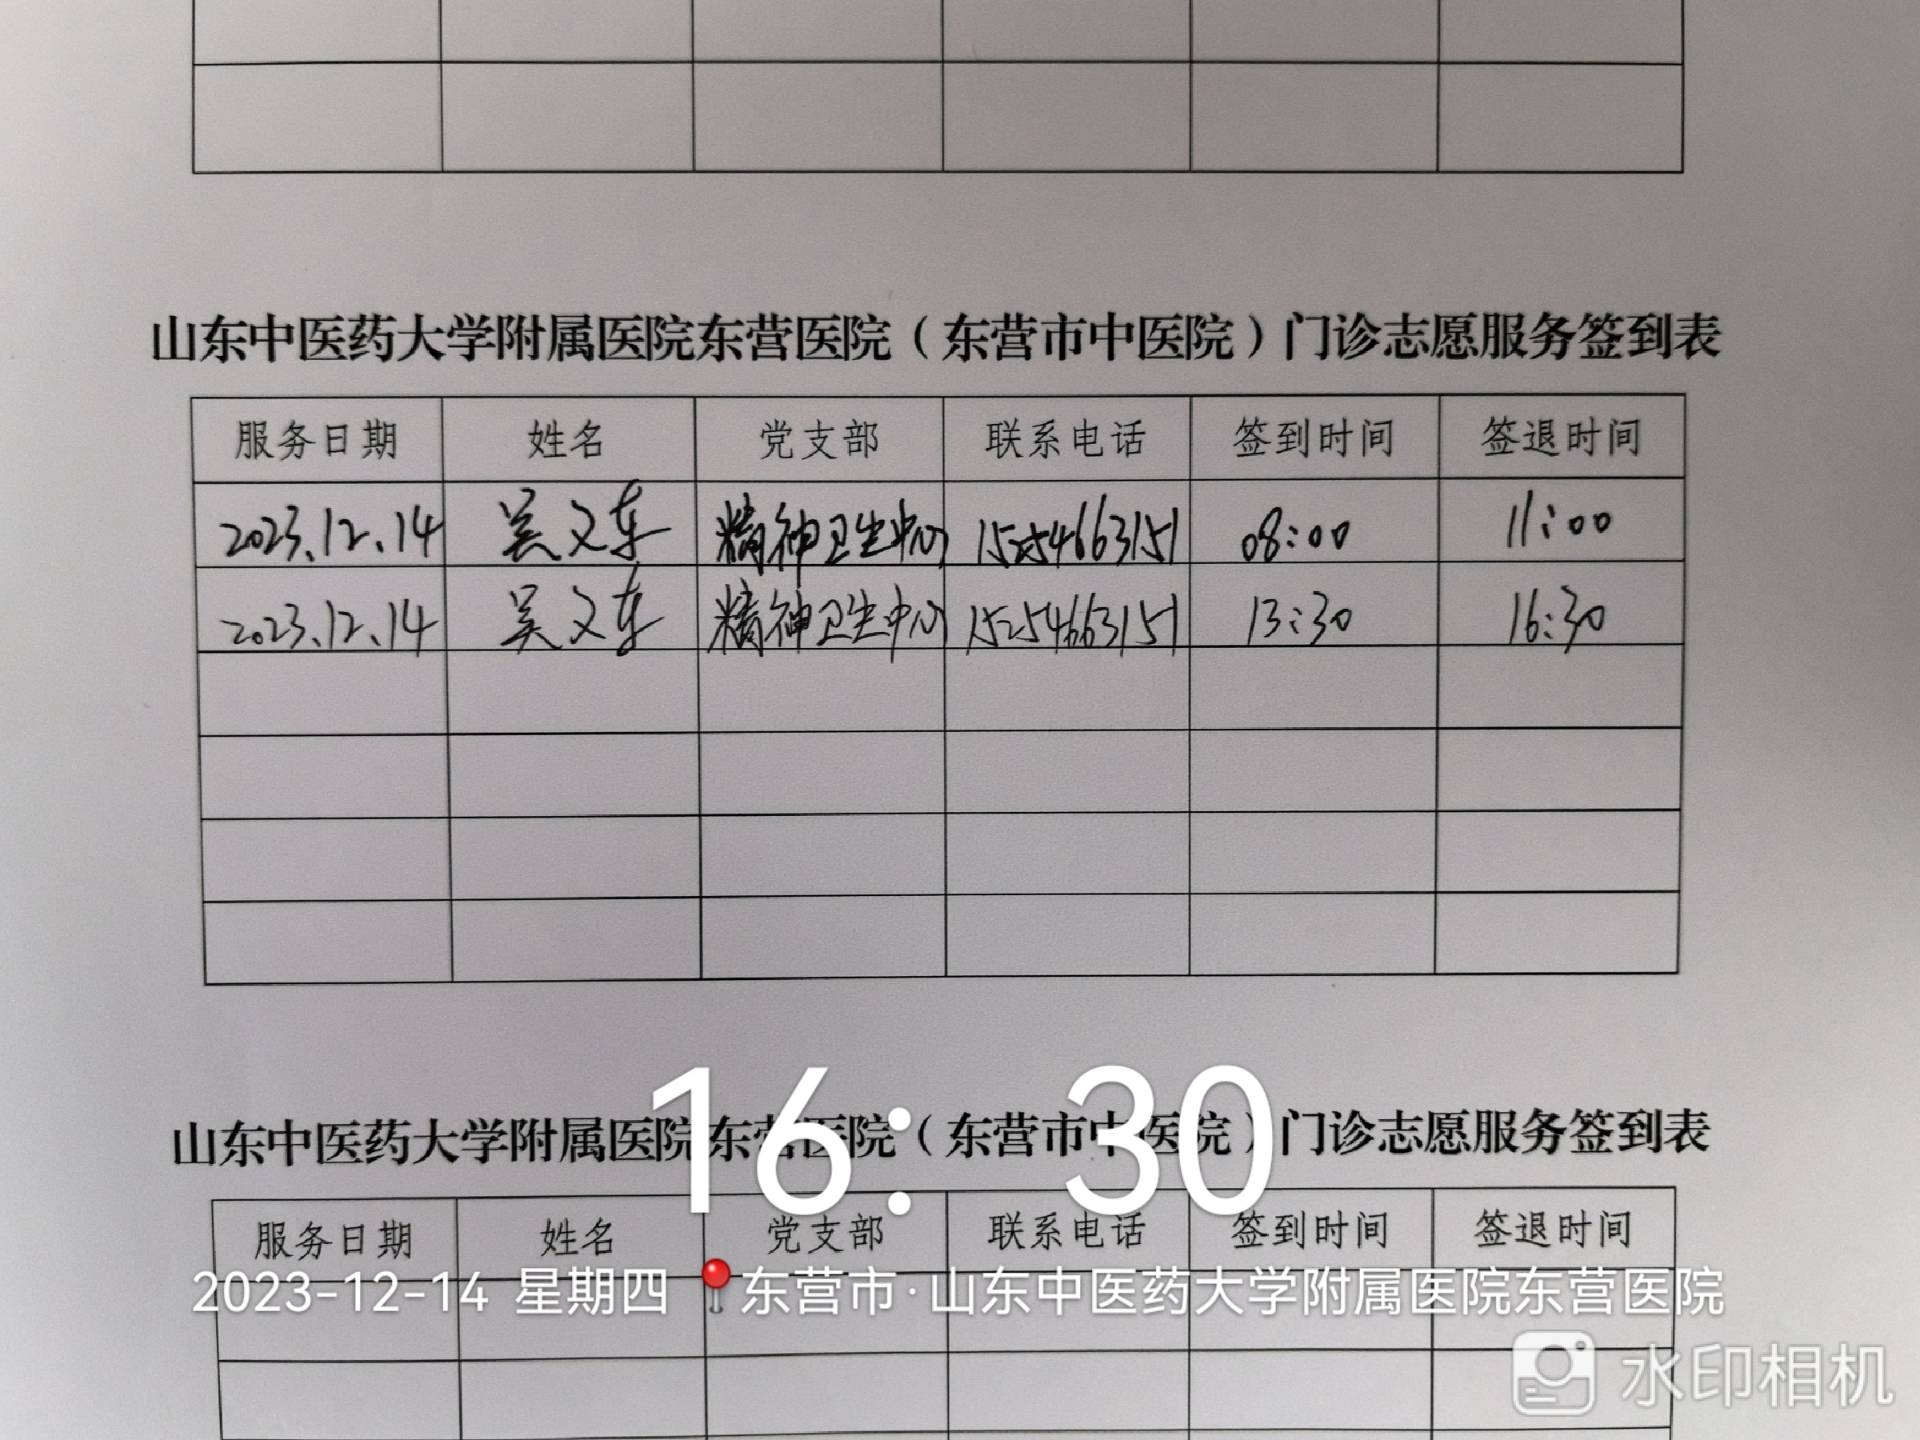 山东中医药大学附属医院东营医院（东营市中医院）门诊志愿服务签到表
服务日期 姓名 党支部 联系电话 签到时间 签退时间
2023.12.14 吴义东 精神卫生中心 15254663151 08:00 11:00
2023.12.14 吴义东 精神卫生中心 15254663151 13:30 16:30
16:30
山东中医药大学附属医院东营医院（东营市中医院）门诊志愿服务签到表
服务日期 姓名 党支部 联系电话 签到时间 签退时间
2023-12-14 星期四 东营市·山东中医药大学附属医院东营医院
水印相机